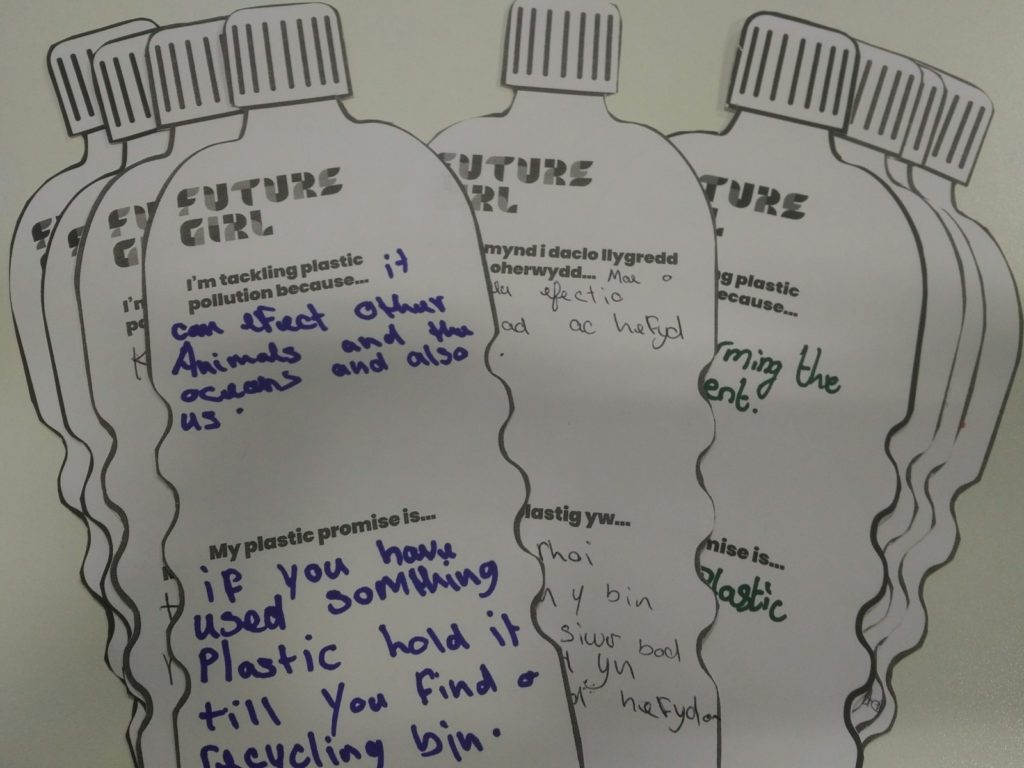 FUTURE
GIRL
I'm tackling plastic
pollution because... it
can efect other
Animals and the
oceans and also
us.
My plastic promise is...
if you have
used somthing
Plastic hold it
till you find a
recycling bin.
UTURE
RL
mynd i daclo llygredd
oherwydd... Mae o
efectio
ad ac hefyd
lastig yw...
rhoi
n y bin
siwr bod
yn
hefyd
TURE
L
ng plastic
ecause...
rming the
ent.
mise is...
Plastic
FU
GI
I'm
po